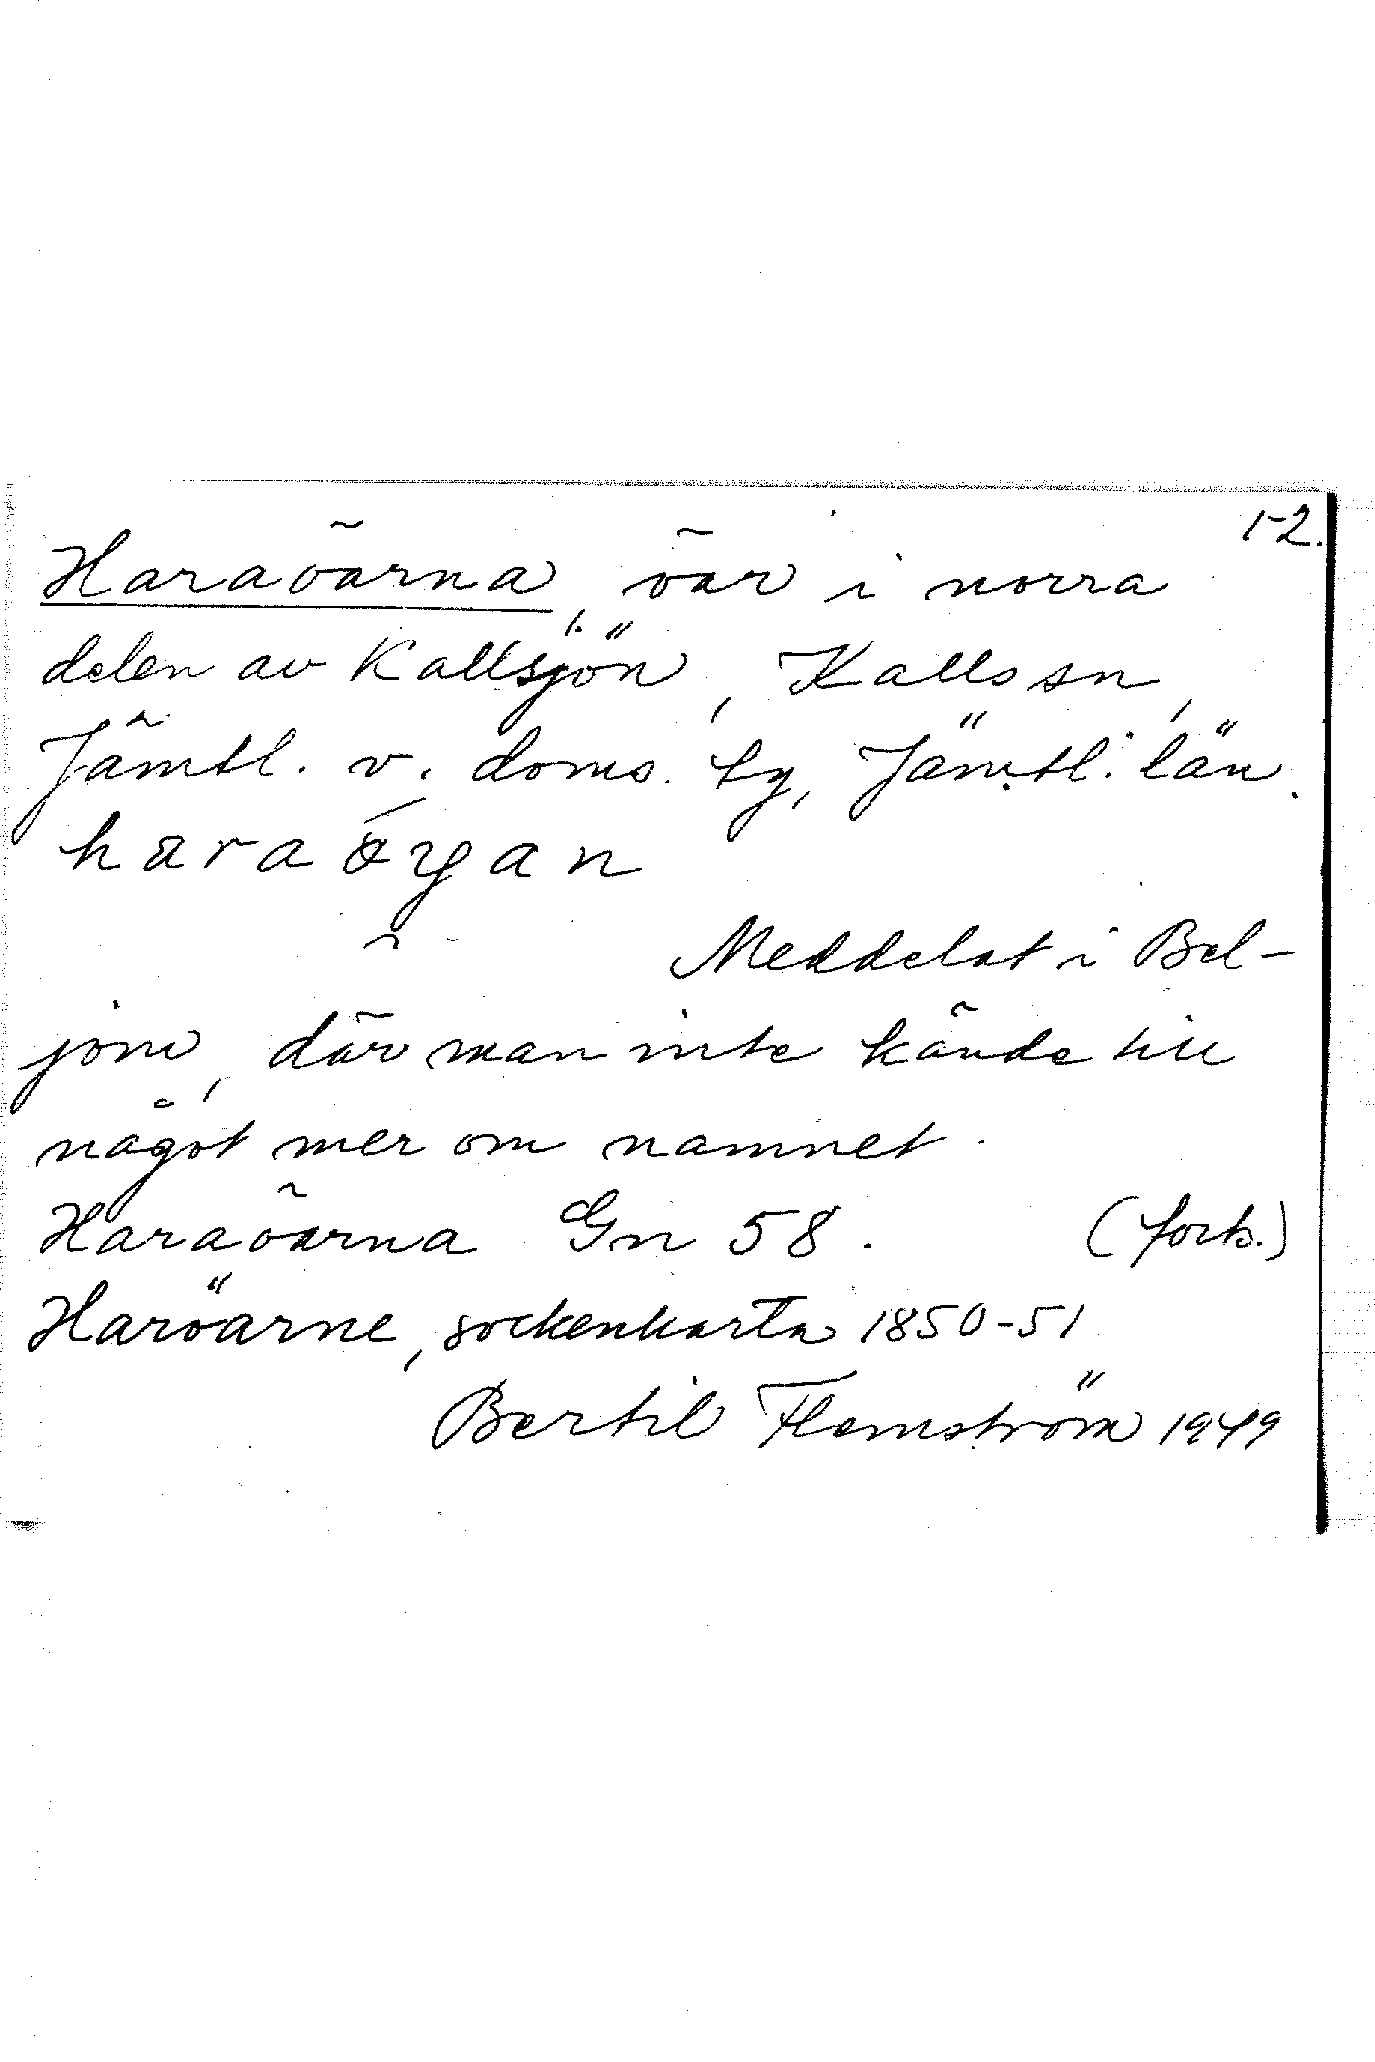 1-2.
Haraöarna, öar i norra
delen av Kallsjön, Kalls sn,
Jämtl. v. doms. tg, Jämtl. län.
haraöyan
Meddelat i Bel-
jom, där man inte kände till
något mer om namnet.
Haraöarna Gn 58. (forts.)
Haröarne, sockenkarta 1850-51
Bertil Flemström 1949